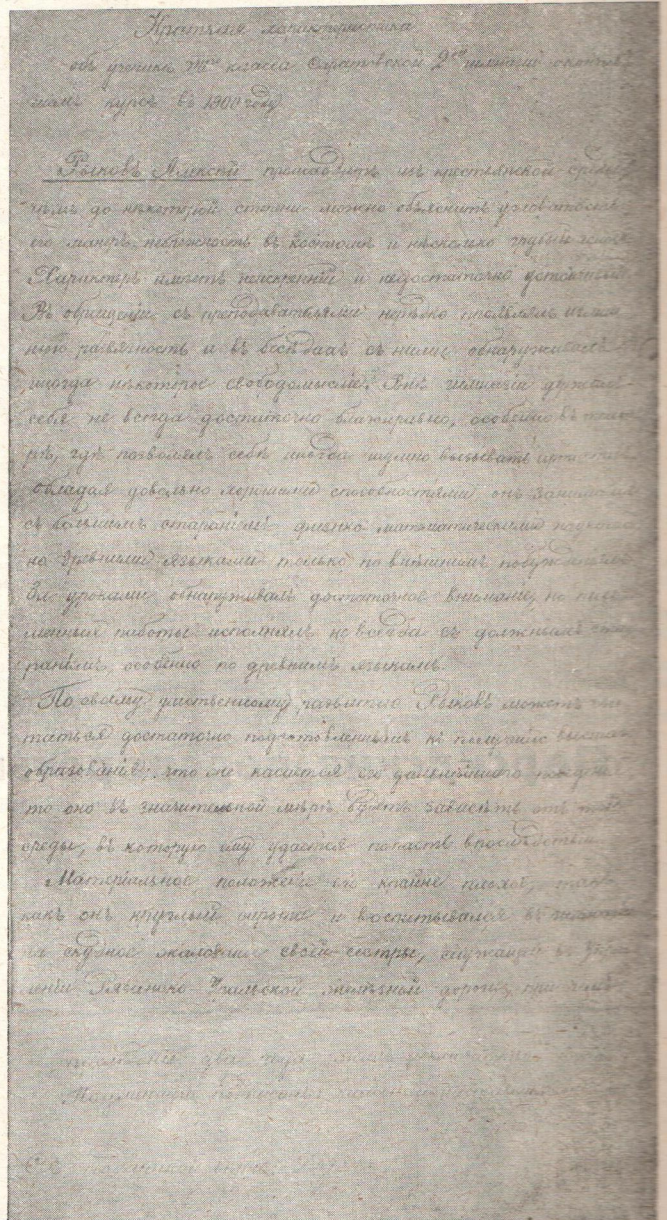 Краткая характеристика
объ ученикѣ VIII класса Саратовской 2ой гимназіи окончив-
шемъ курсъ въ 1900 году.
Рыковъ Алексѣй происходитъ изъ крестьянской среды,
чѣмъ до нѣкоторой степени можно объяснить угловатость
его манеръ, небрежность въ костюмѣ и нѣсколько грубый
Характеръ имѣетъ неискренній и недостаточно устойчивый
Въ обращеніи съ преподавателями нерѣдко проявлялъ
ную развязность и въ бесѣдахъ съ ними обнаруживалъ
иногда нѣкоторое свободомысліе. Внѣ гимназіи держалъ
себя не всегда достаточно благонравно, особенно въ теат-
рѣ, гдѣ позволялъ себѣ иногда шумно вызывать артистовъ
Обладая довольно хорошими способностями онъ занимался
съ большимъ стараніемъ физико математическими
но древними языками только по внѣшнимъ побужденіямъ
За уроками обнаруживалъ достаточное вниманіе, но пись-
менныя работы исполнялъ не всегда съ должнымъ ста-
раніемъ, особенно по древнимъ языкамъ.
По своему умственному развитію Рыковъ можетъ счи-
таться достаточно подготовленнымъ къ полученію высшаго
образованія; что же касается его дальнѣйшаго
то оно въ значительной мѣрѣ будетъ зависѣть отъ той
среды, въ которую ему удастся попасть впослѣдствіи.
Матеріальное положеніе его крайне плохое, такъ
какъ онъ круглый сирота и воспитывался въ гимназіи
на скудное жалованье своей сестры, служащей въ Управ-
леніи Рязанско Уральской желѣзной дороги,